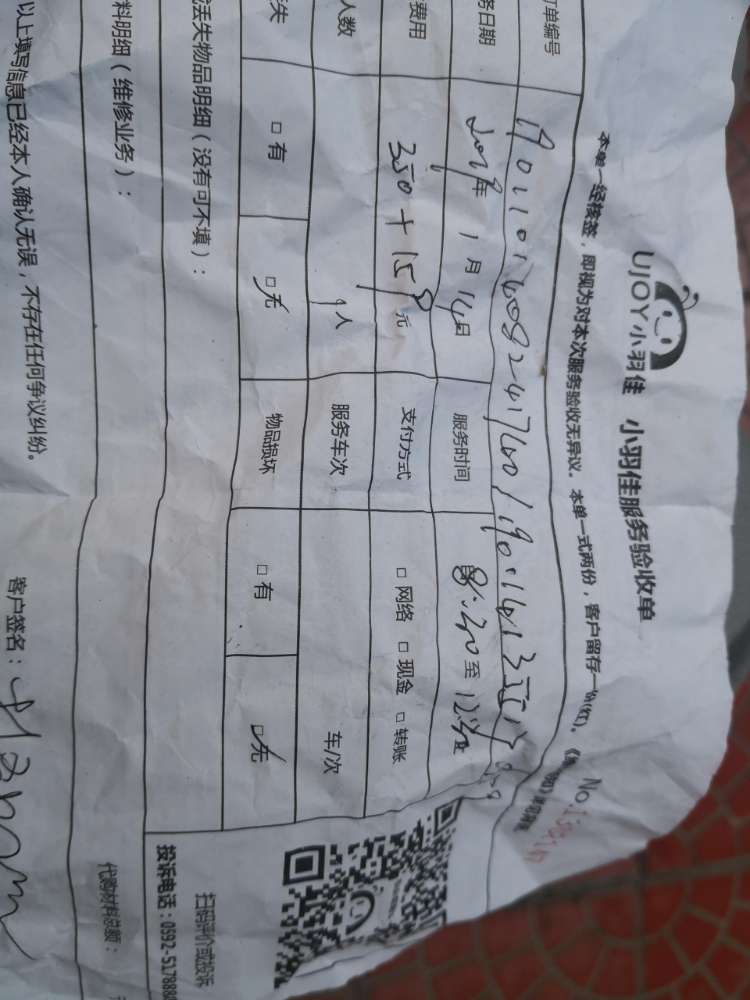 UJOY小羽佳 小羽佳服务验收单
本单一经核签，即视为对本次服务验收无异议。本单一式两份，客户留存一份(红)。
No:
单编号
务日期 2019年 1月 14日 服务时间 8:30至12:30
费用 350+159元 支付方式 □网络 □现金 □转账
人数 1人 服务车次 车/次
失 □有 □无 物品损坏 □有 □无
丢失物品明细（没有可不填）：
料明细（维修业务）：
代购材料总额：
以上填写信息已经本人确认无误，不存在任何争议纠纷。 客户签名：
扫码评价或投诉
投诉电话：0592-5178888